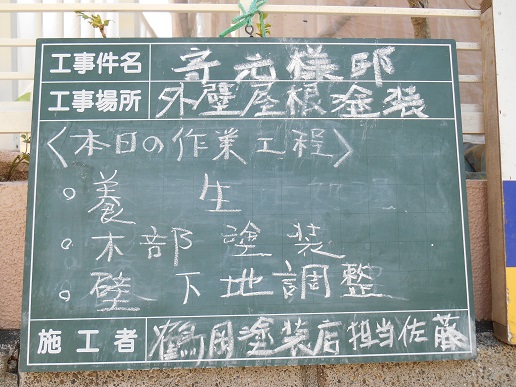 工事件名 寺元様邸
工事場所 外壁屋根塗装
〈本日の作業工程〉
。養 生
。木部塗装
。壁下地調整
施工者 鶴岡塗装店担当佐藤